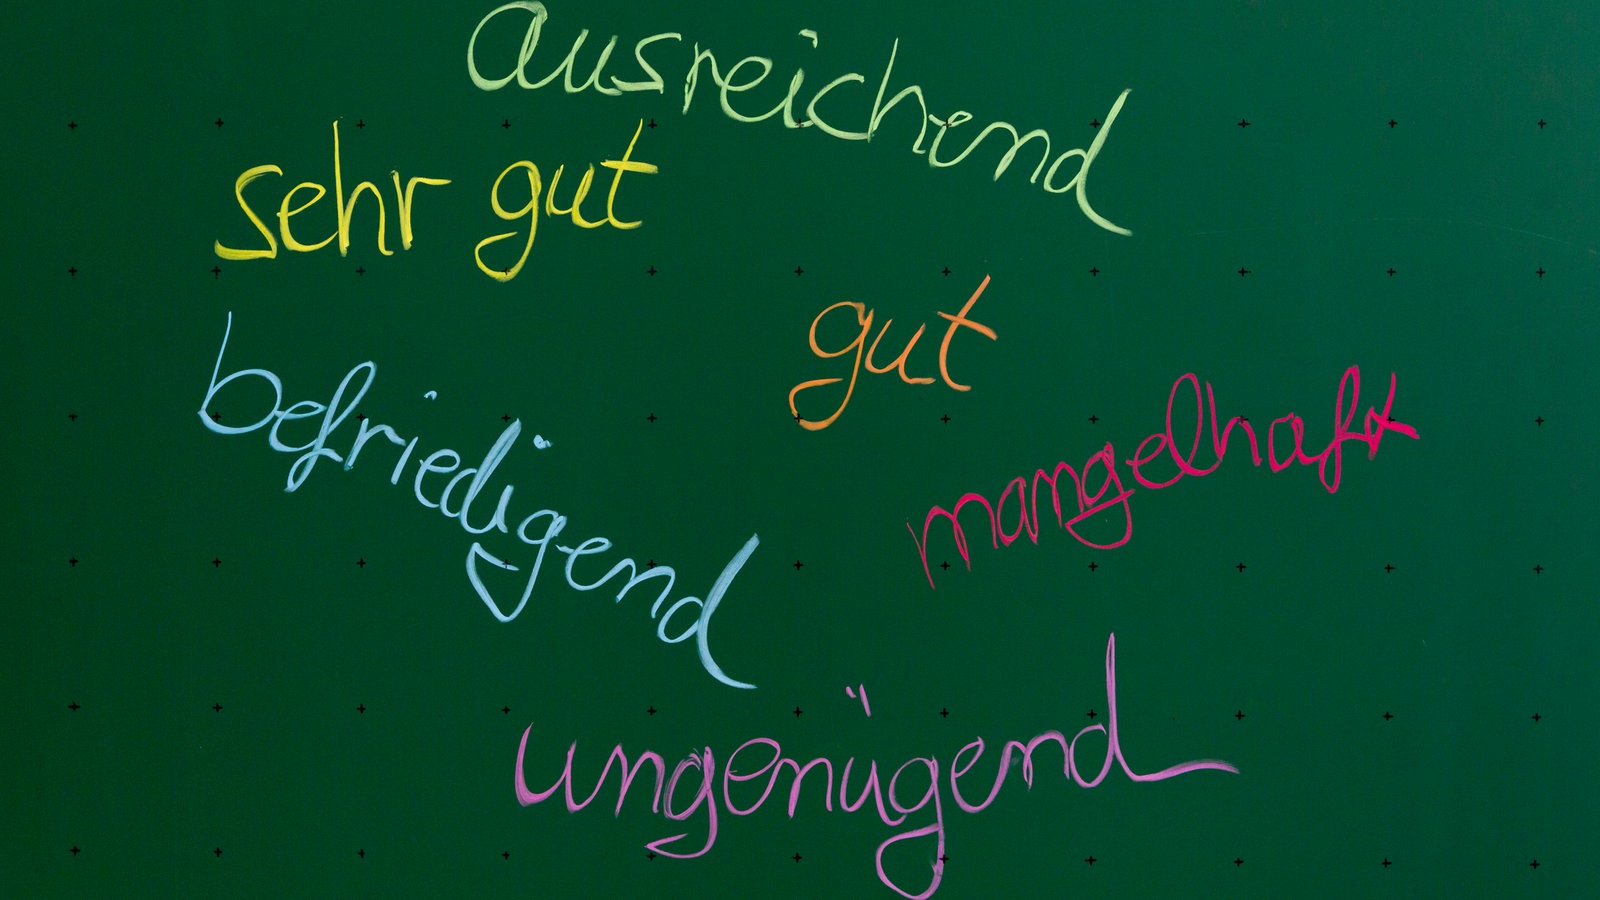 ausreichend
sehr gut
gut
befriedigend
mangelhaft
ungenügend